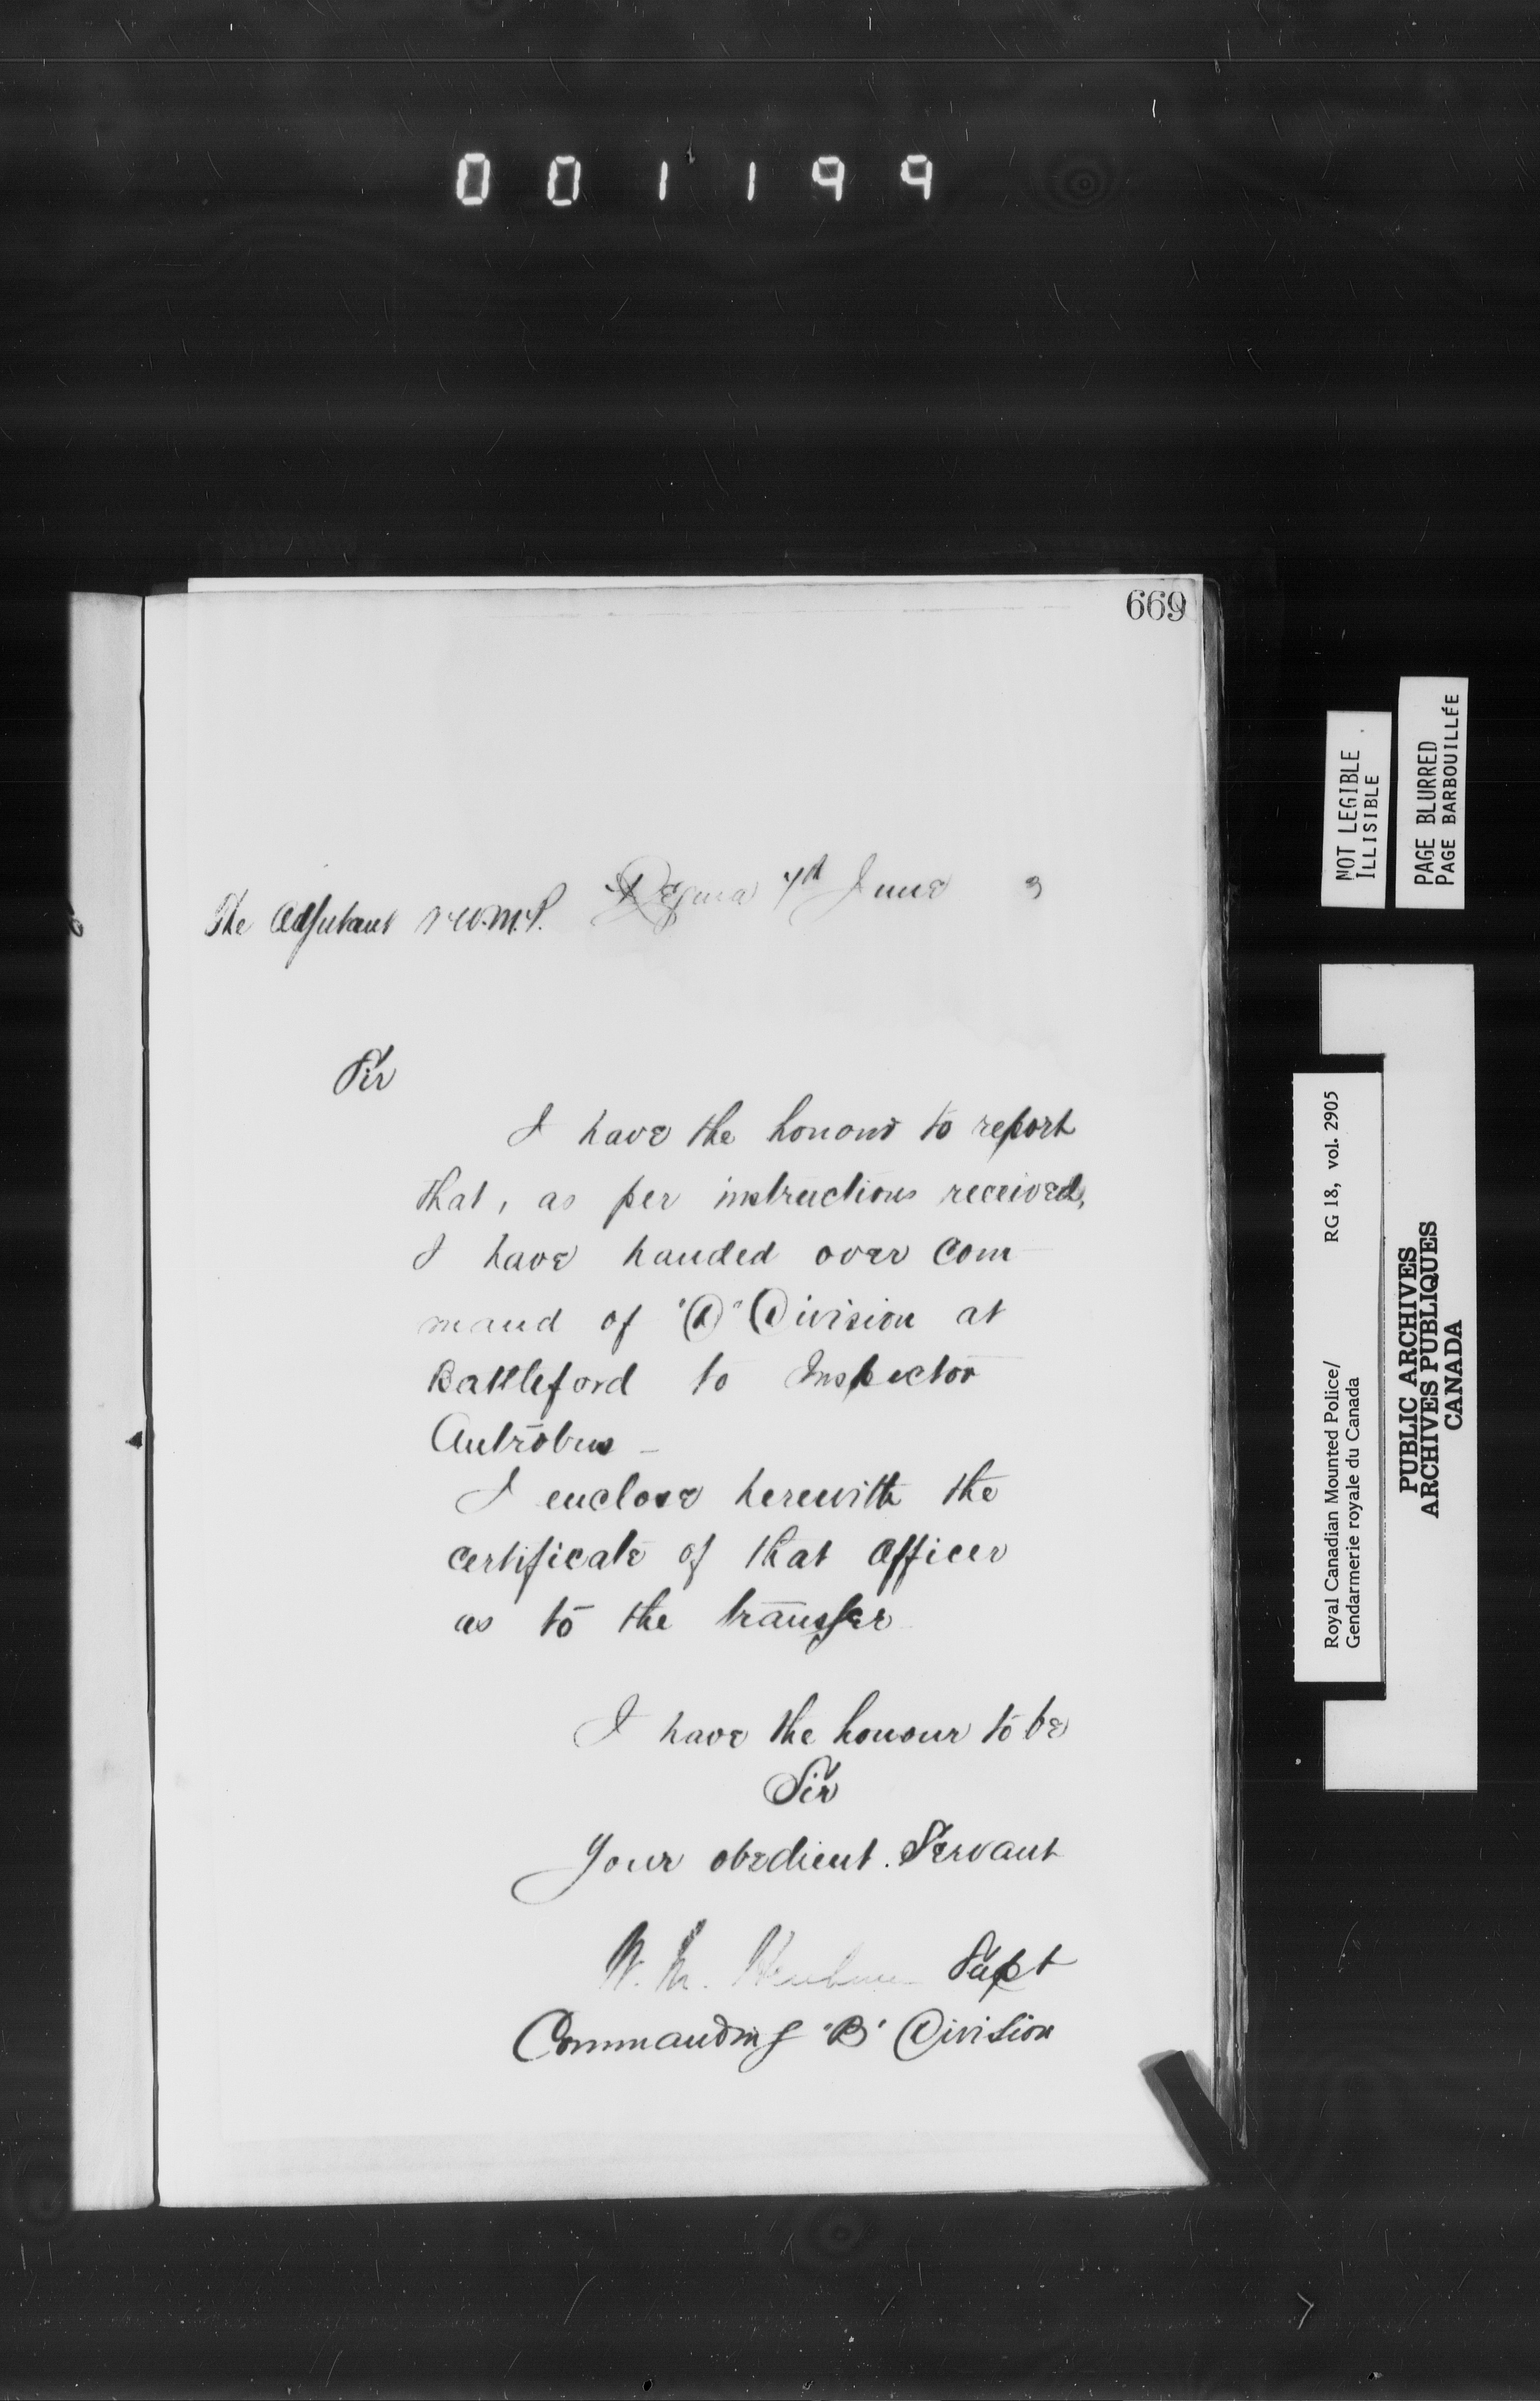 001199
669
Regina 7th June 3
The Adjutant N.W.M.P.
Sir
I have the honour to report
that, as per instructions received,
I have handed over Com
mand of "D" Division at
Battleford to Inspector
Antrobus –
I enclose herewith the
certificate of that Officer
as to the transfer
I have the honour to be
Sir
Your obedient Servant
W. M. Supt
Commanding 'B' Division
NOT LEGIBLE
ILLISIBLE
PAGE BLURRED
PAGE BARBOUILLÉE
Royal Canadian Mounted Police/ RG 18, vol. 2905
Gendarmerie royale du Canada
PUBLIC ARCHIVES
ARCHIVES PUBLIQUES
CANADA